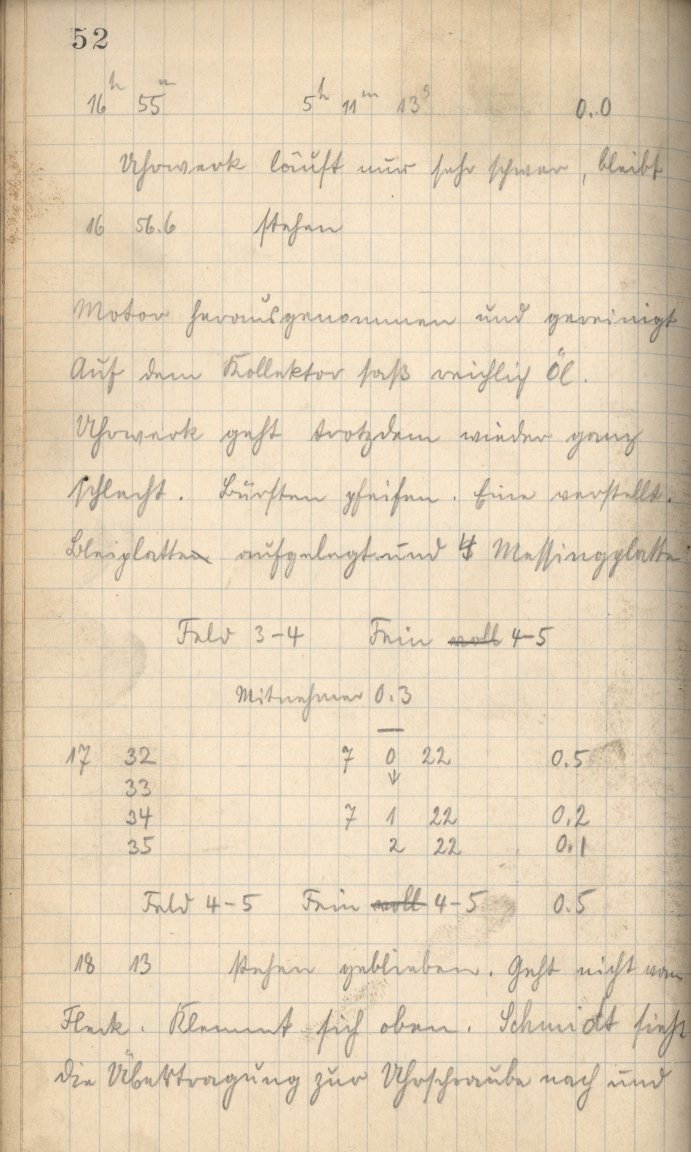 52
16h 55m 5h 11m 13s 0.0
Uhrwerk läuft nur sehr schwer, bleibt
16 56.6 stehen
Motor herausgenommen und gereinigt
Auf dem Kollektor saß reichlich Öl.
Uhrwerk geht trotzdem wieder ganz
schlecht. Bürsten pfeifen. Eine verstellt.
Bleiplatten aufgelegt und 4 Messingplatte
Feld 3-4 Fein voll 4-5
Mitnehmer 0.3
17 32 7 0 22 0.5
33 ↓
34 7 1 22 0.2
35 2 22 0.1
Feld 4-5 Fein voll 4-5 0.5
18 13 stehen geblieben. Geht nicht vom
Fleck. Klemmt sich oben. Schmidt sieht
die Übertragung zur Uhrschraube nach und